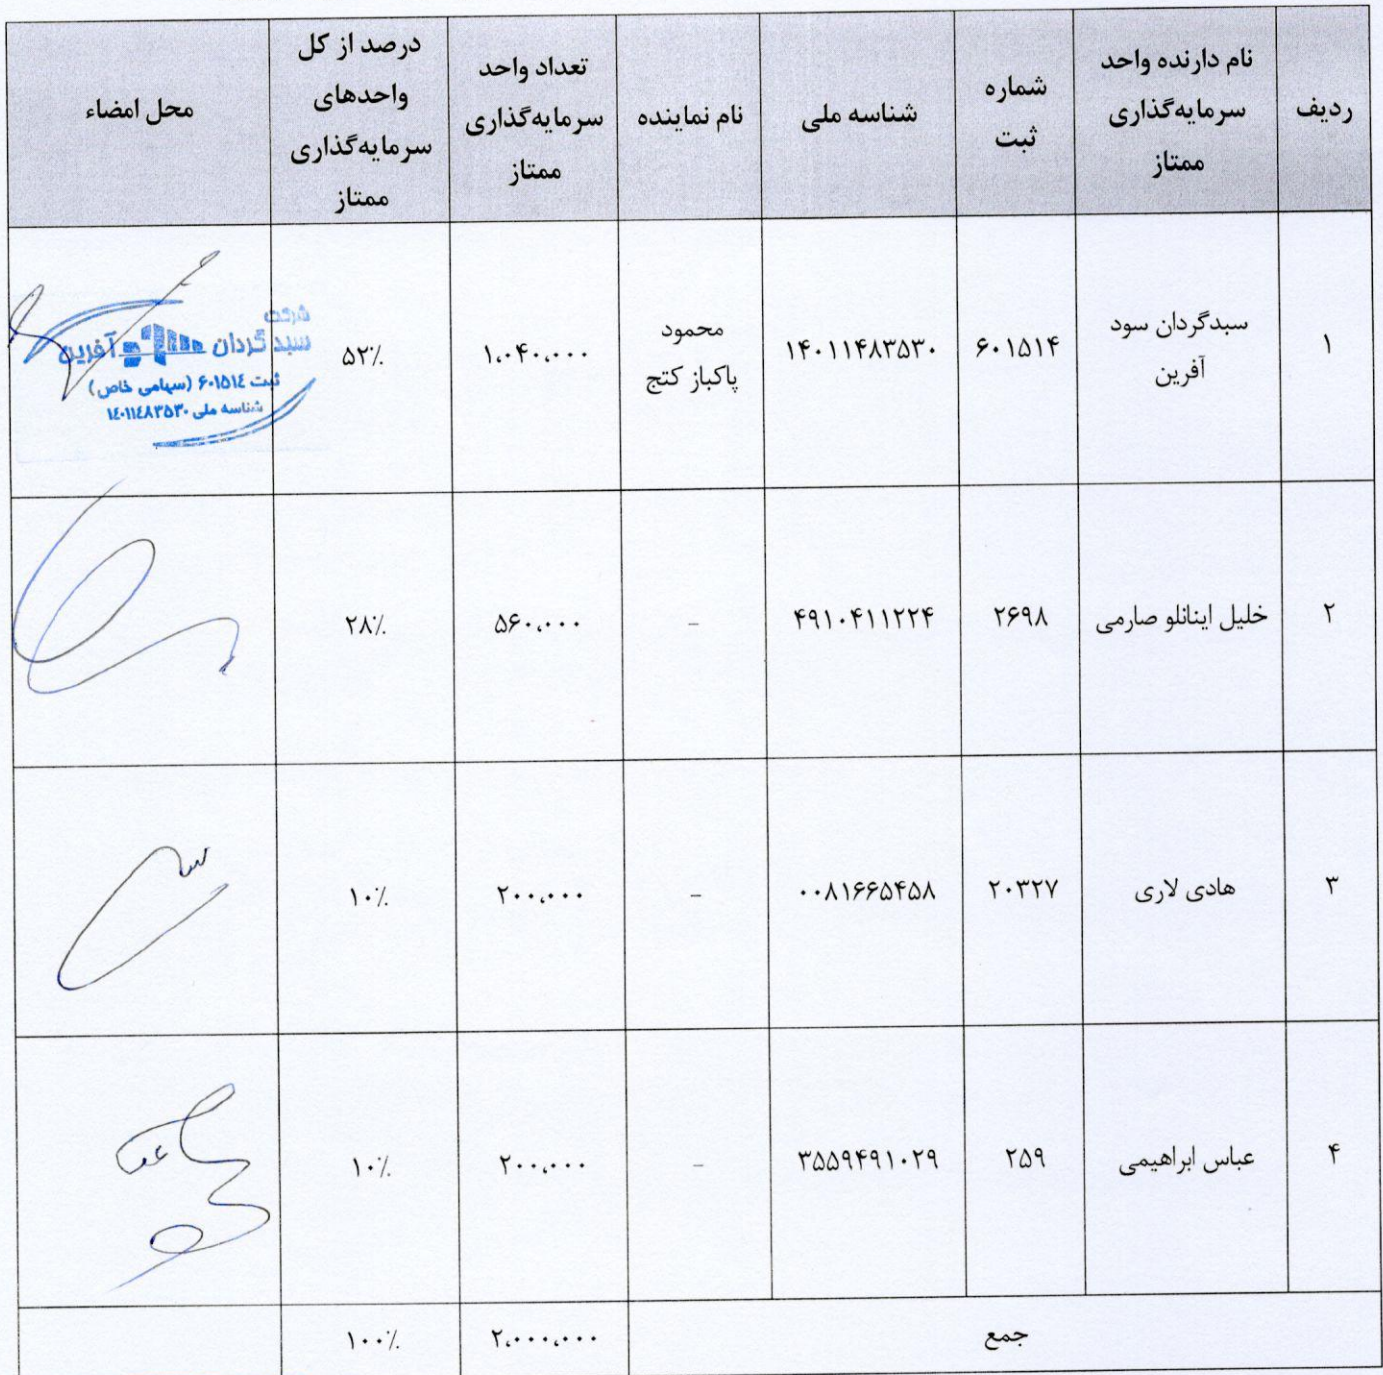 ردیف
نام دارنده واحد
سرمایه‌گذاری
ممتاز
شماره
ثبت
شناسه ملی
نام نماینده
تعداد واحد
سرمایه‌گذاری
ممتاز
درصد از کل
واحدهای
سرمایه‌گذاری
ممتاز
محل امضاء
۱
سبدگردان سود
آفرین
۶۰۱۵۱۴
۱۴۰۱۱۴۸۳۵۳۰
محمود
پاکباز کتج
۱،۰۴۰،۰۰۰
۵۲٪
شرکت
سبد گردان سود آفرین
ثبت ۶۰۱۵۱۴ (سهامی خاص)
شناسه ملی ۱۴۰۱۱۴۸۳۵۳۰
۲
خلیل اینانلو صارمی
۲۶۹۸
۴۹۱۰۴۱۱۲۲۴
-
۵۶۰،۰۰۰
۲۸٪
۳
هادی لاری
۲۰۳۲۷
۰۰۸۱۶۶۵۴۵۸
-
۲۰۰،۰۰۰
۱۰٪
۴
عباس ابراهیمی
۲۵۹
۳۵۵۹۴۹۱۰۲۹
-
۲۰۰،۰۰۰
۱۰٪
جمع
۲،۰۰۰،۰۰۰
۱۰۰٪